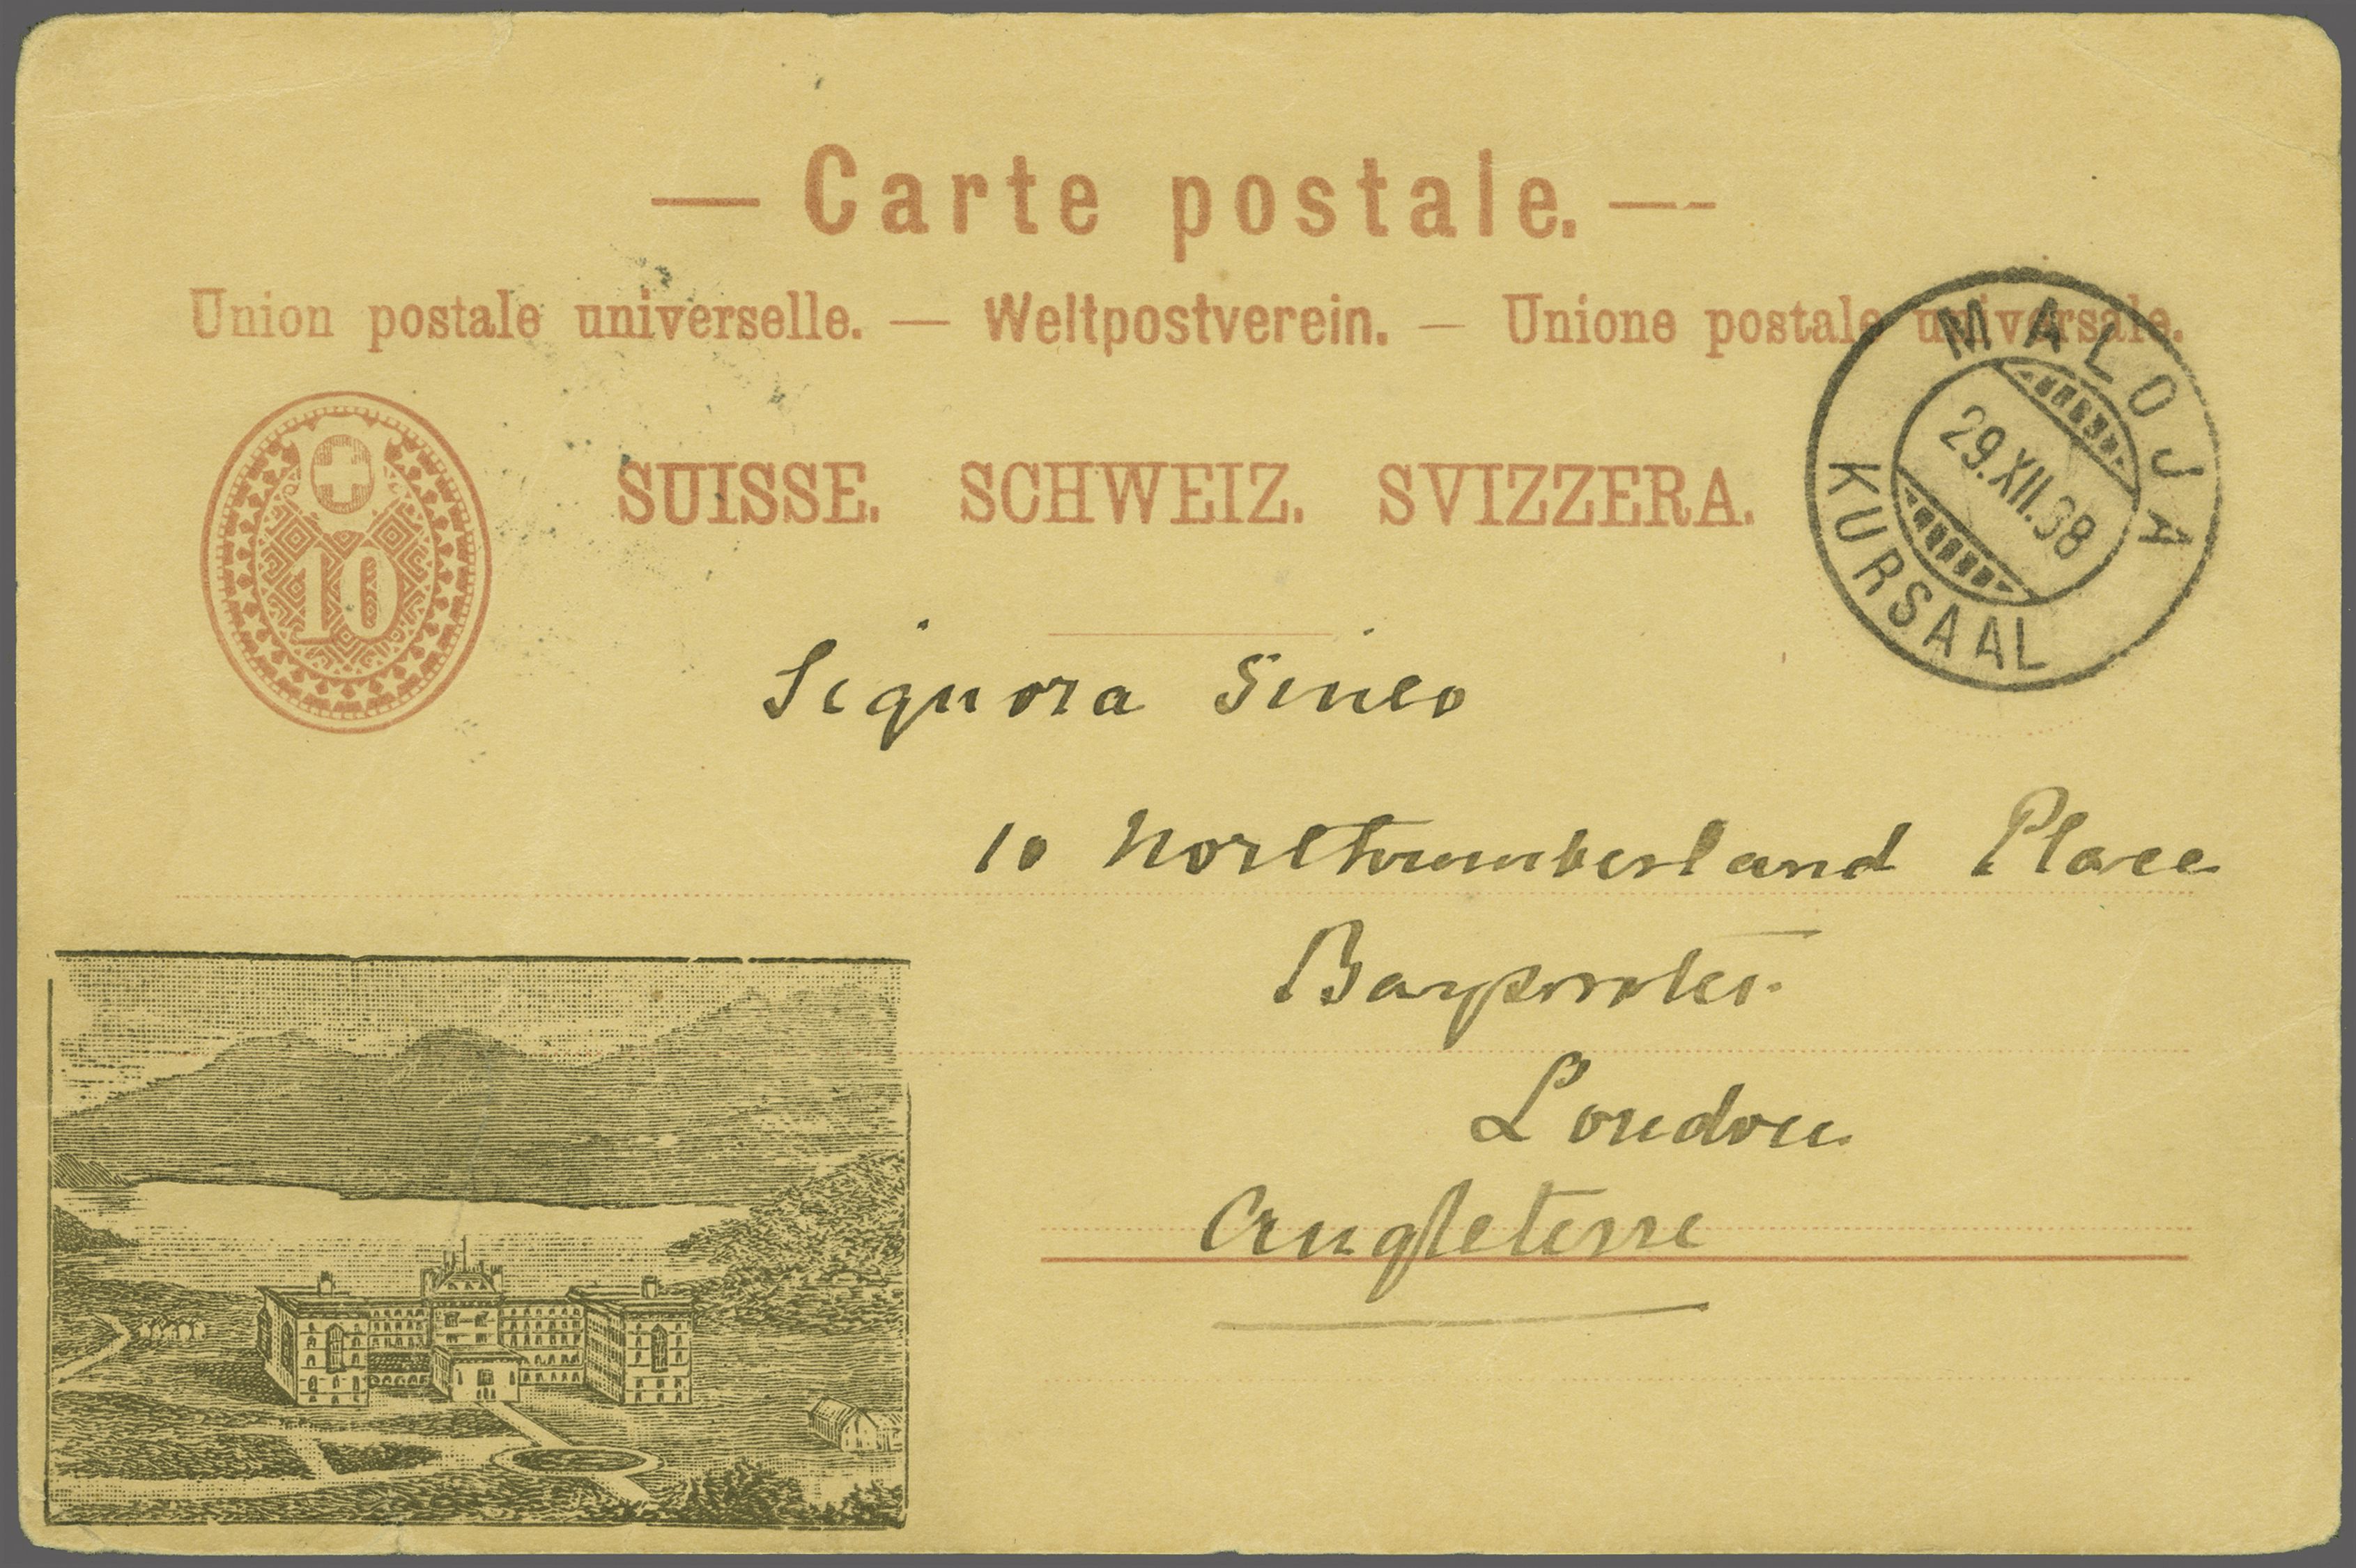 — Carte postale. —
Union postale universelle. — Weltpostverein. — Unione postale universale.
SUISSE. SCHWEIZ. SVIZZERA.
10
MALOJA
29.XII.98
KURSAAL
Signora Sineo
10 Northumberland Place
Bayswater.
London
Angleterre